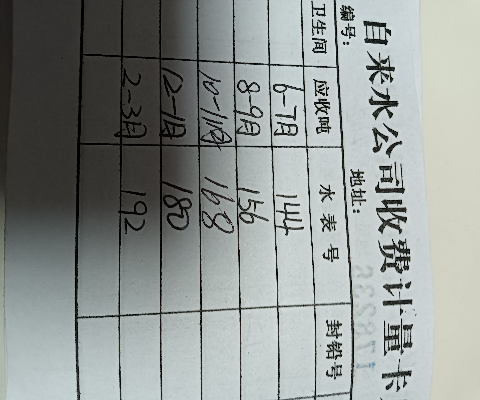 自来水公司收费计量卡
编号： 地址：
卫生间 应收吨 水表号 封铅号
6-7月 144
8-9月 156
10-11月 168
12-1月 180
2-3月 192